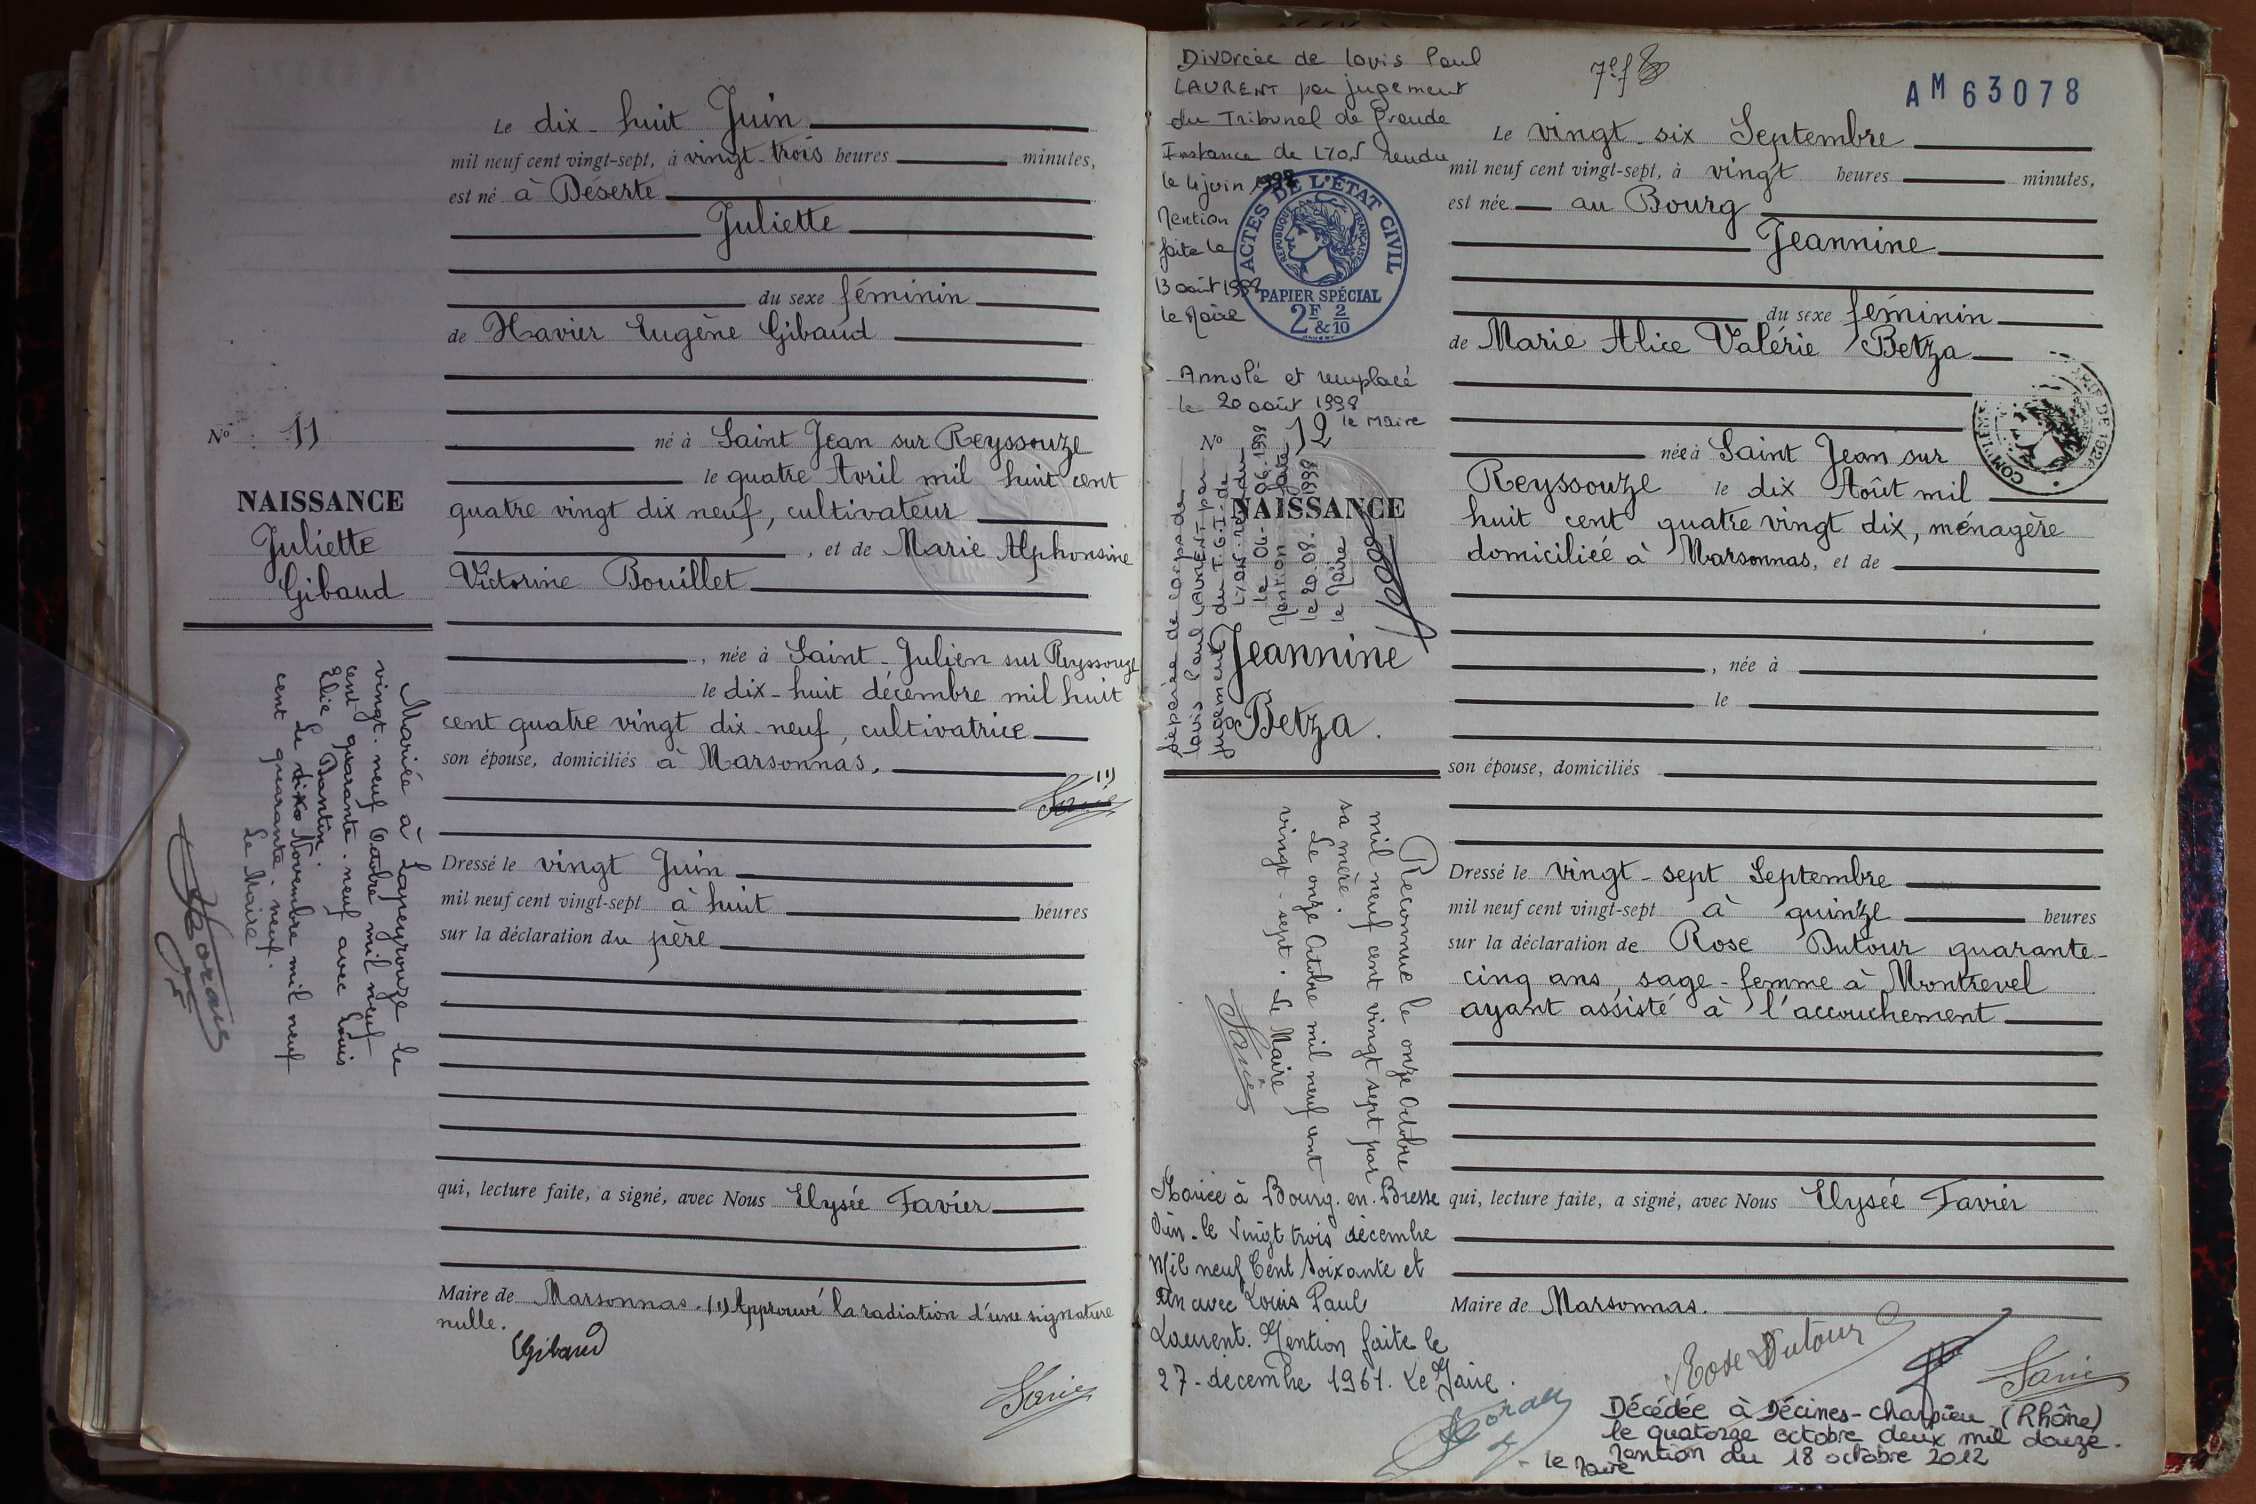 Le dix-huit Juin
mil neuf cent vingt-sept, à vingt-trois heures minutes,
est né à Déserte
Juliette
du sexe féminin
de Xavier Eugène Gibaud
né à Saint Jean sur Reyssouze
le quatre Avril mil huit cent
quatre vingt dix neuf, cultivateur
, et de Marie Alphonsine
Victorine Bouillet
, née à Saint-Julien sur Reyssouze
le dix-huit décembre mil huit
cent quatre vingt dix-neuf, cultivatrice
son épouse, domiciliés à Marsonnas,
(1)
Dressé le vingt Juin
mil neuf cent vingt-sept à huit heures
sur la déclaration du père
qui, lecture faite, a signé, avec Nous Elysée Favier
Maire de Marsonnas. (1) Approuvé la radiation d'une signature
nulle.
Gibaud
No 11
NAISSANCE
Juliette
Gibaud
Mariée à Lapeyrouze le
vingt-neuf Octobre mil neuf
cent quarante-neuf avec Louis
Elie Bantin.
Le Novembre mil neuf
cent quarante-neuf.
Le Maire
Divorcée de Louis Paul
LAURENT par jugement
du Tribunal de Grande
Instance de LYON rendu
le 4 juin 1998
Mention
faite le
13 août 1998
le Maire
ACTES DE L'ÉTAT CIVIL
RÉPUBLIQUE FRANÇAISE
PAPIER SPÉCIAL
2F & 2/10
Annulé et remplacé
le 20 août 1998
le Maire
No 12
NAISSANCE
Jeannine
Betza.
Séparée de corps de
Louis Paul LAURENT par
jugement du T.G.I. de
LYON rendu
le 04-06-1998
Mention faite
le 20.08.1998
le Maire
Reconnue le onze Octobre
mil neuf cent vingt sept par
sa mère.
Le onze Octobre mil neuf cent
vingt-sept. Le Maire
Mariée à Bourg-en-Bresse
Ain-le vingt trois décembre
Mil neuf Cent Soixante et
un avec Louis Paul
Laurent. Mention faite le
27-décembre 1961. Le Maire.
7e f
AM 63078
Le vingt-six Septembre
mil neuf cent vingt-sept, à vingt heures minutes,
est née au Bourg
Jeannine
du sexe féminin
de Marie Alice Valérie Betza
née à Saint Jean sur
Reyssouze le dix Août mil
huit cent quatre vingt dix, ménagère
domiciliée à Marsonnas, et de
, née à
le
son épouse, domiciliés
Dressé le vingt-sept Septembre
mil neuf cent vingt-sept à quinze heures
sur la déclaration de Rose Dutour quarante-
cinq ans, sage-femme à Montrevel
ayant assisté à l'accouchement
qui, lecture faite, a signé, avec Nous Elysée Favier
Maire de Marsonnas.
Rose Dutour
Décédée à Décines-Charpieu (Rhône)
le quatorze octobre deux mil douze.
Mention du 18 octobre 2012
le Maire